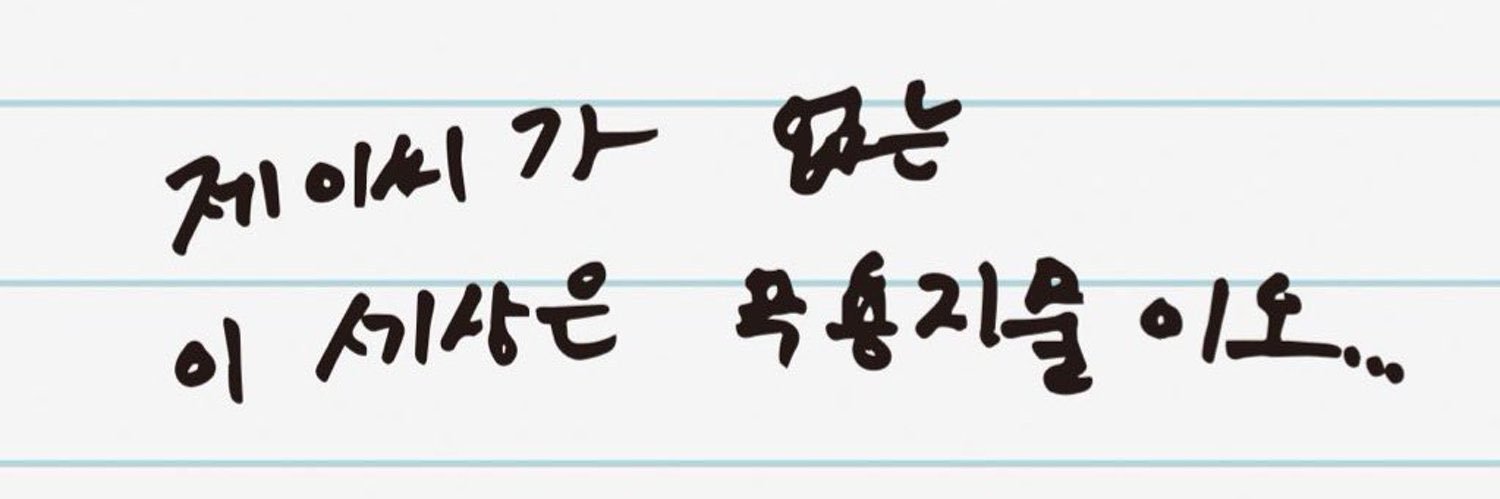 제이씨가 없는
이 세상은 무용지물이오...